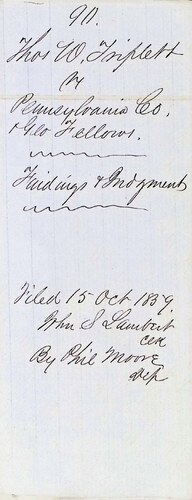 90.
Thos W. Triplett
vs
Pennsylvania Co.
& Geo Fellows.
Findings & Judgment
Filed 15 Oct 1859
Wm S Lambert
Clk
By Phil Moore
Dep